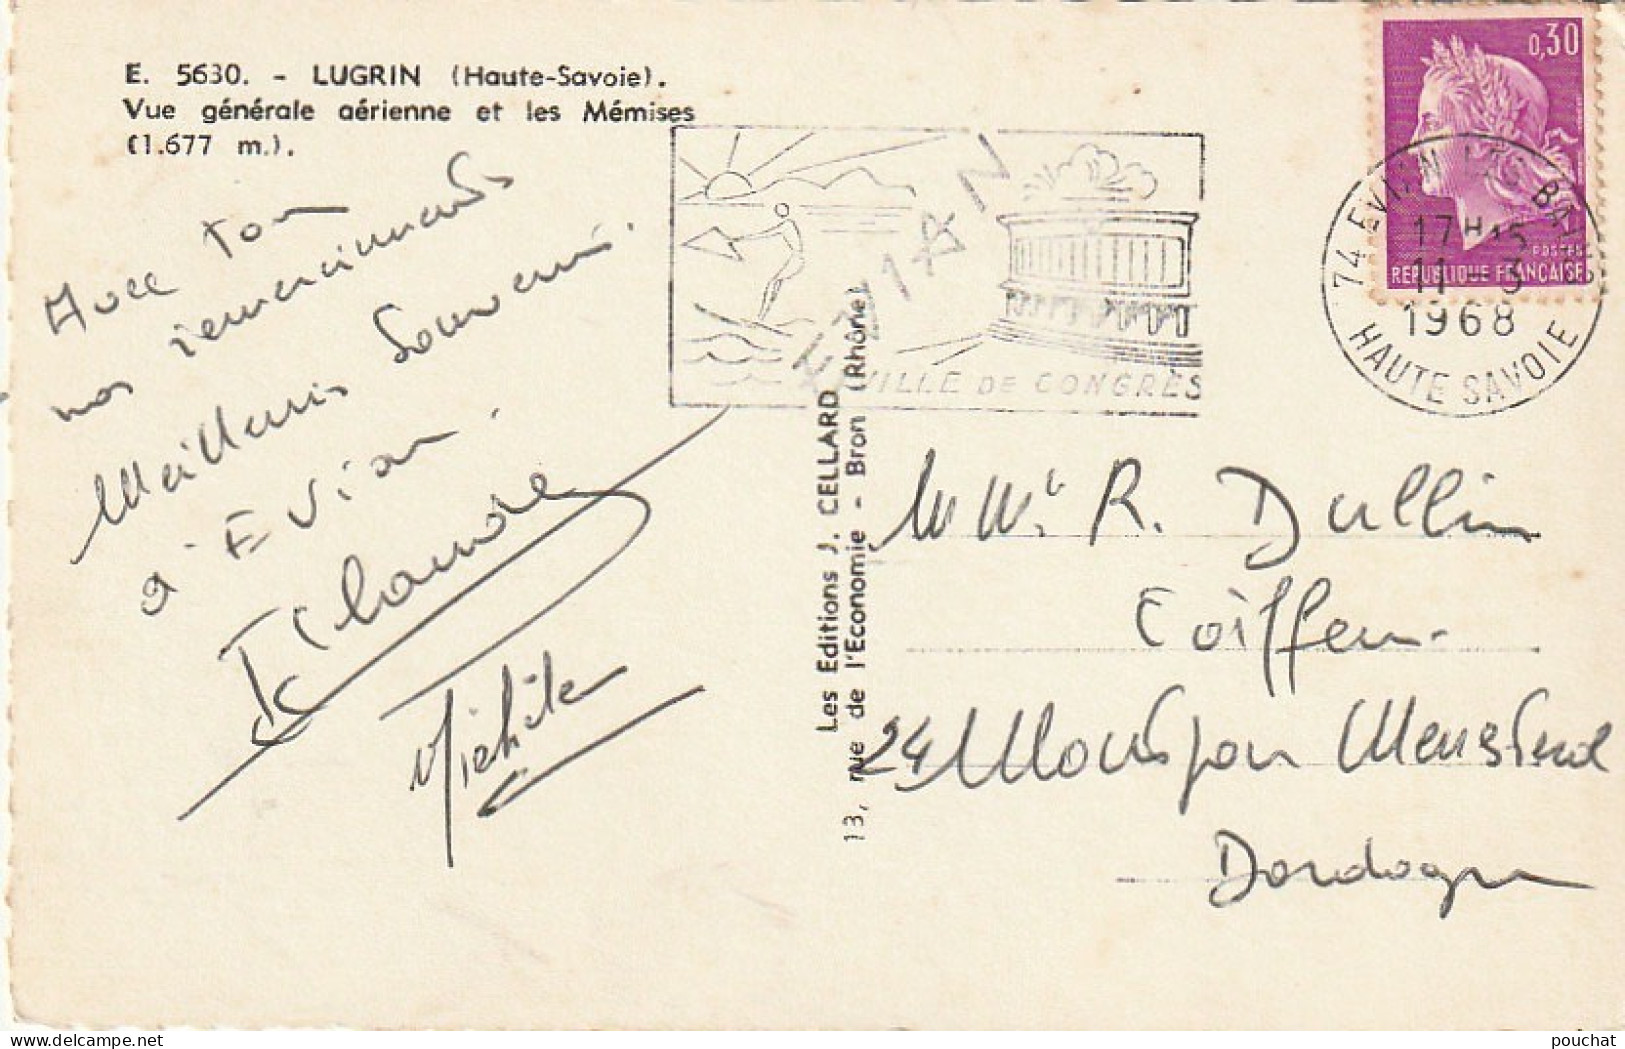 E. 5630. - LUGRIN (Haute-Savoie).
Vue générale aérienne et les Mémises
(1.677 m.).
Avec ton
nos remerciements
Meilleurs Souvenirs.
a Evian.
Claude
Michite
EVIAN
VILLE DE CONGRÈS
0,30
POSTES
REPUBLIQUE FRANÇAISE
74 EVIAN LES BAINS
17H15
11-3
1968
HAUTE SAVOIE
Les Editions J. CELLARD
13, rue de l'Economie - Bron (Rhône)
R. Dullin
Coiffeur
24 Mensterol
Dordogne
pouchat